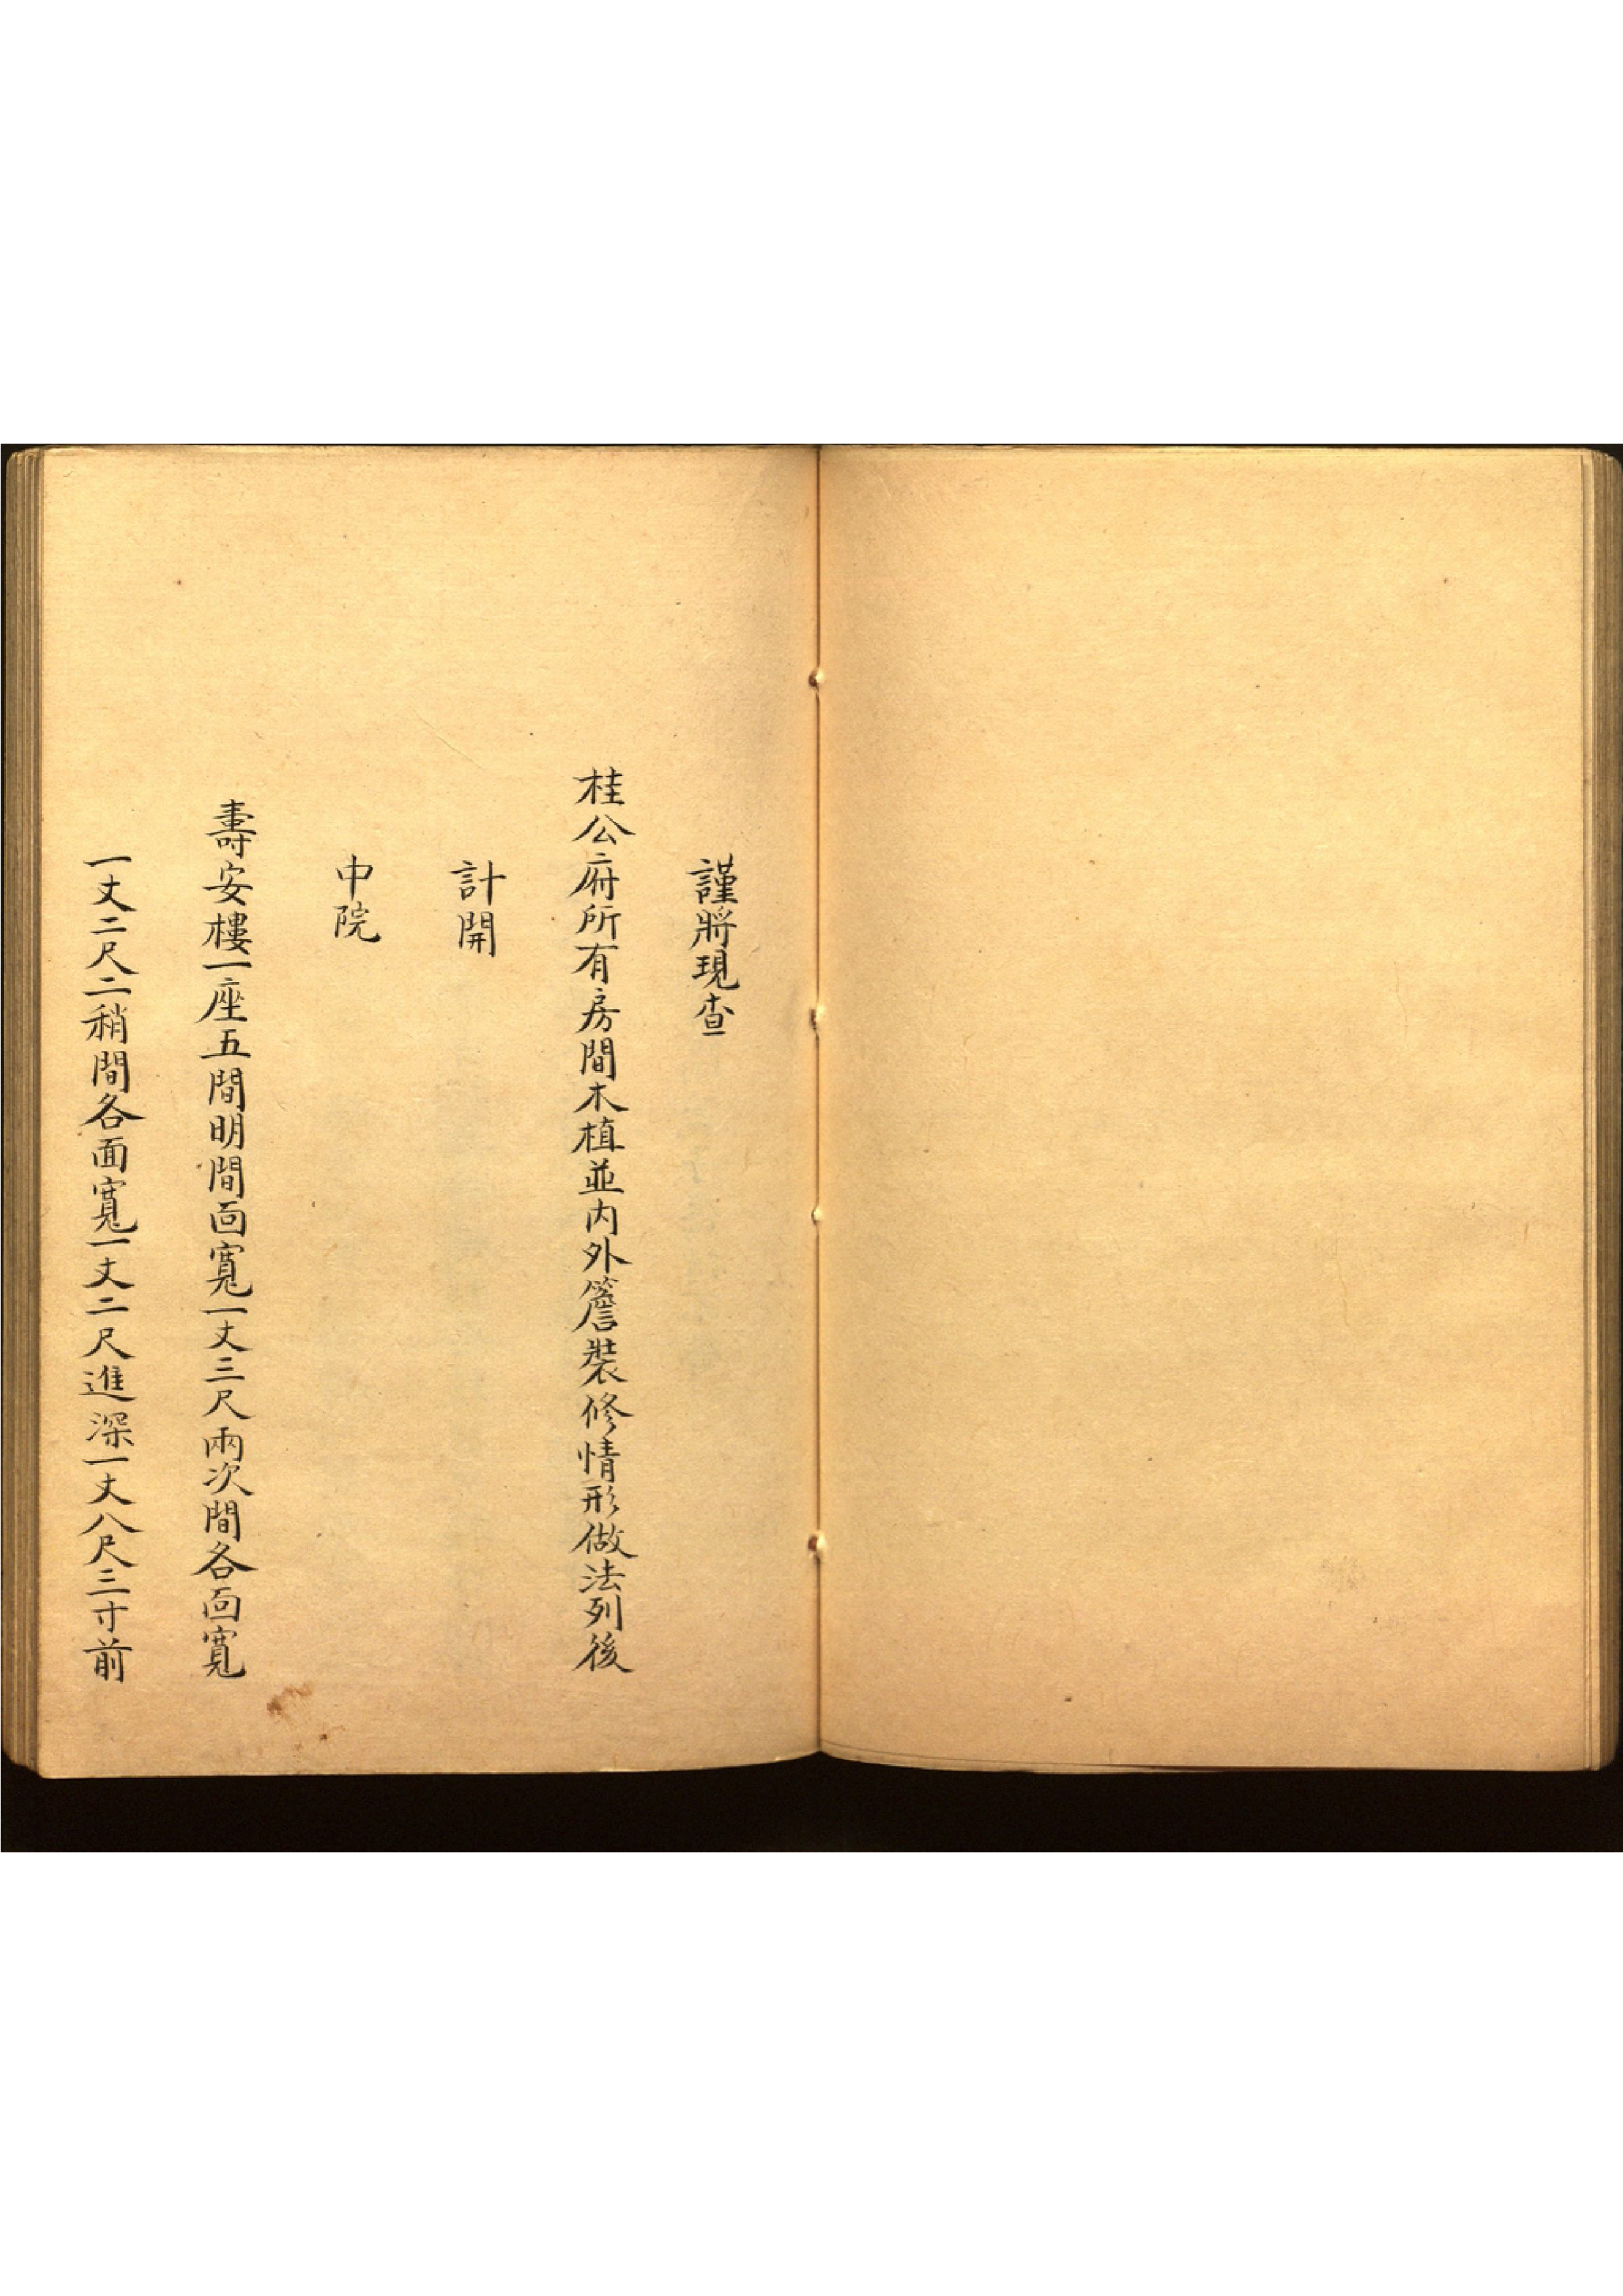 謹將現查
桂公府所有房間木植並内外簷裝修情形做法列後
計開
中院
壽安樓一座五間明間面寬一丈三尺兩次間各面寬
一丈二尺二稍間各面寬一丈二尺進深一丈八尺三寸前